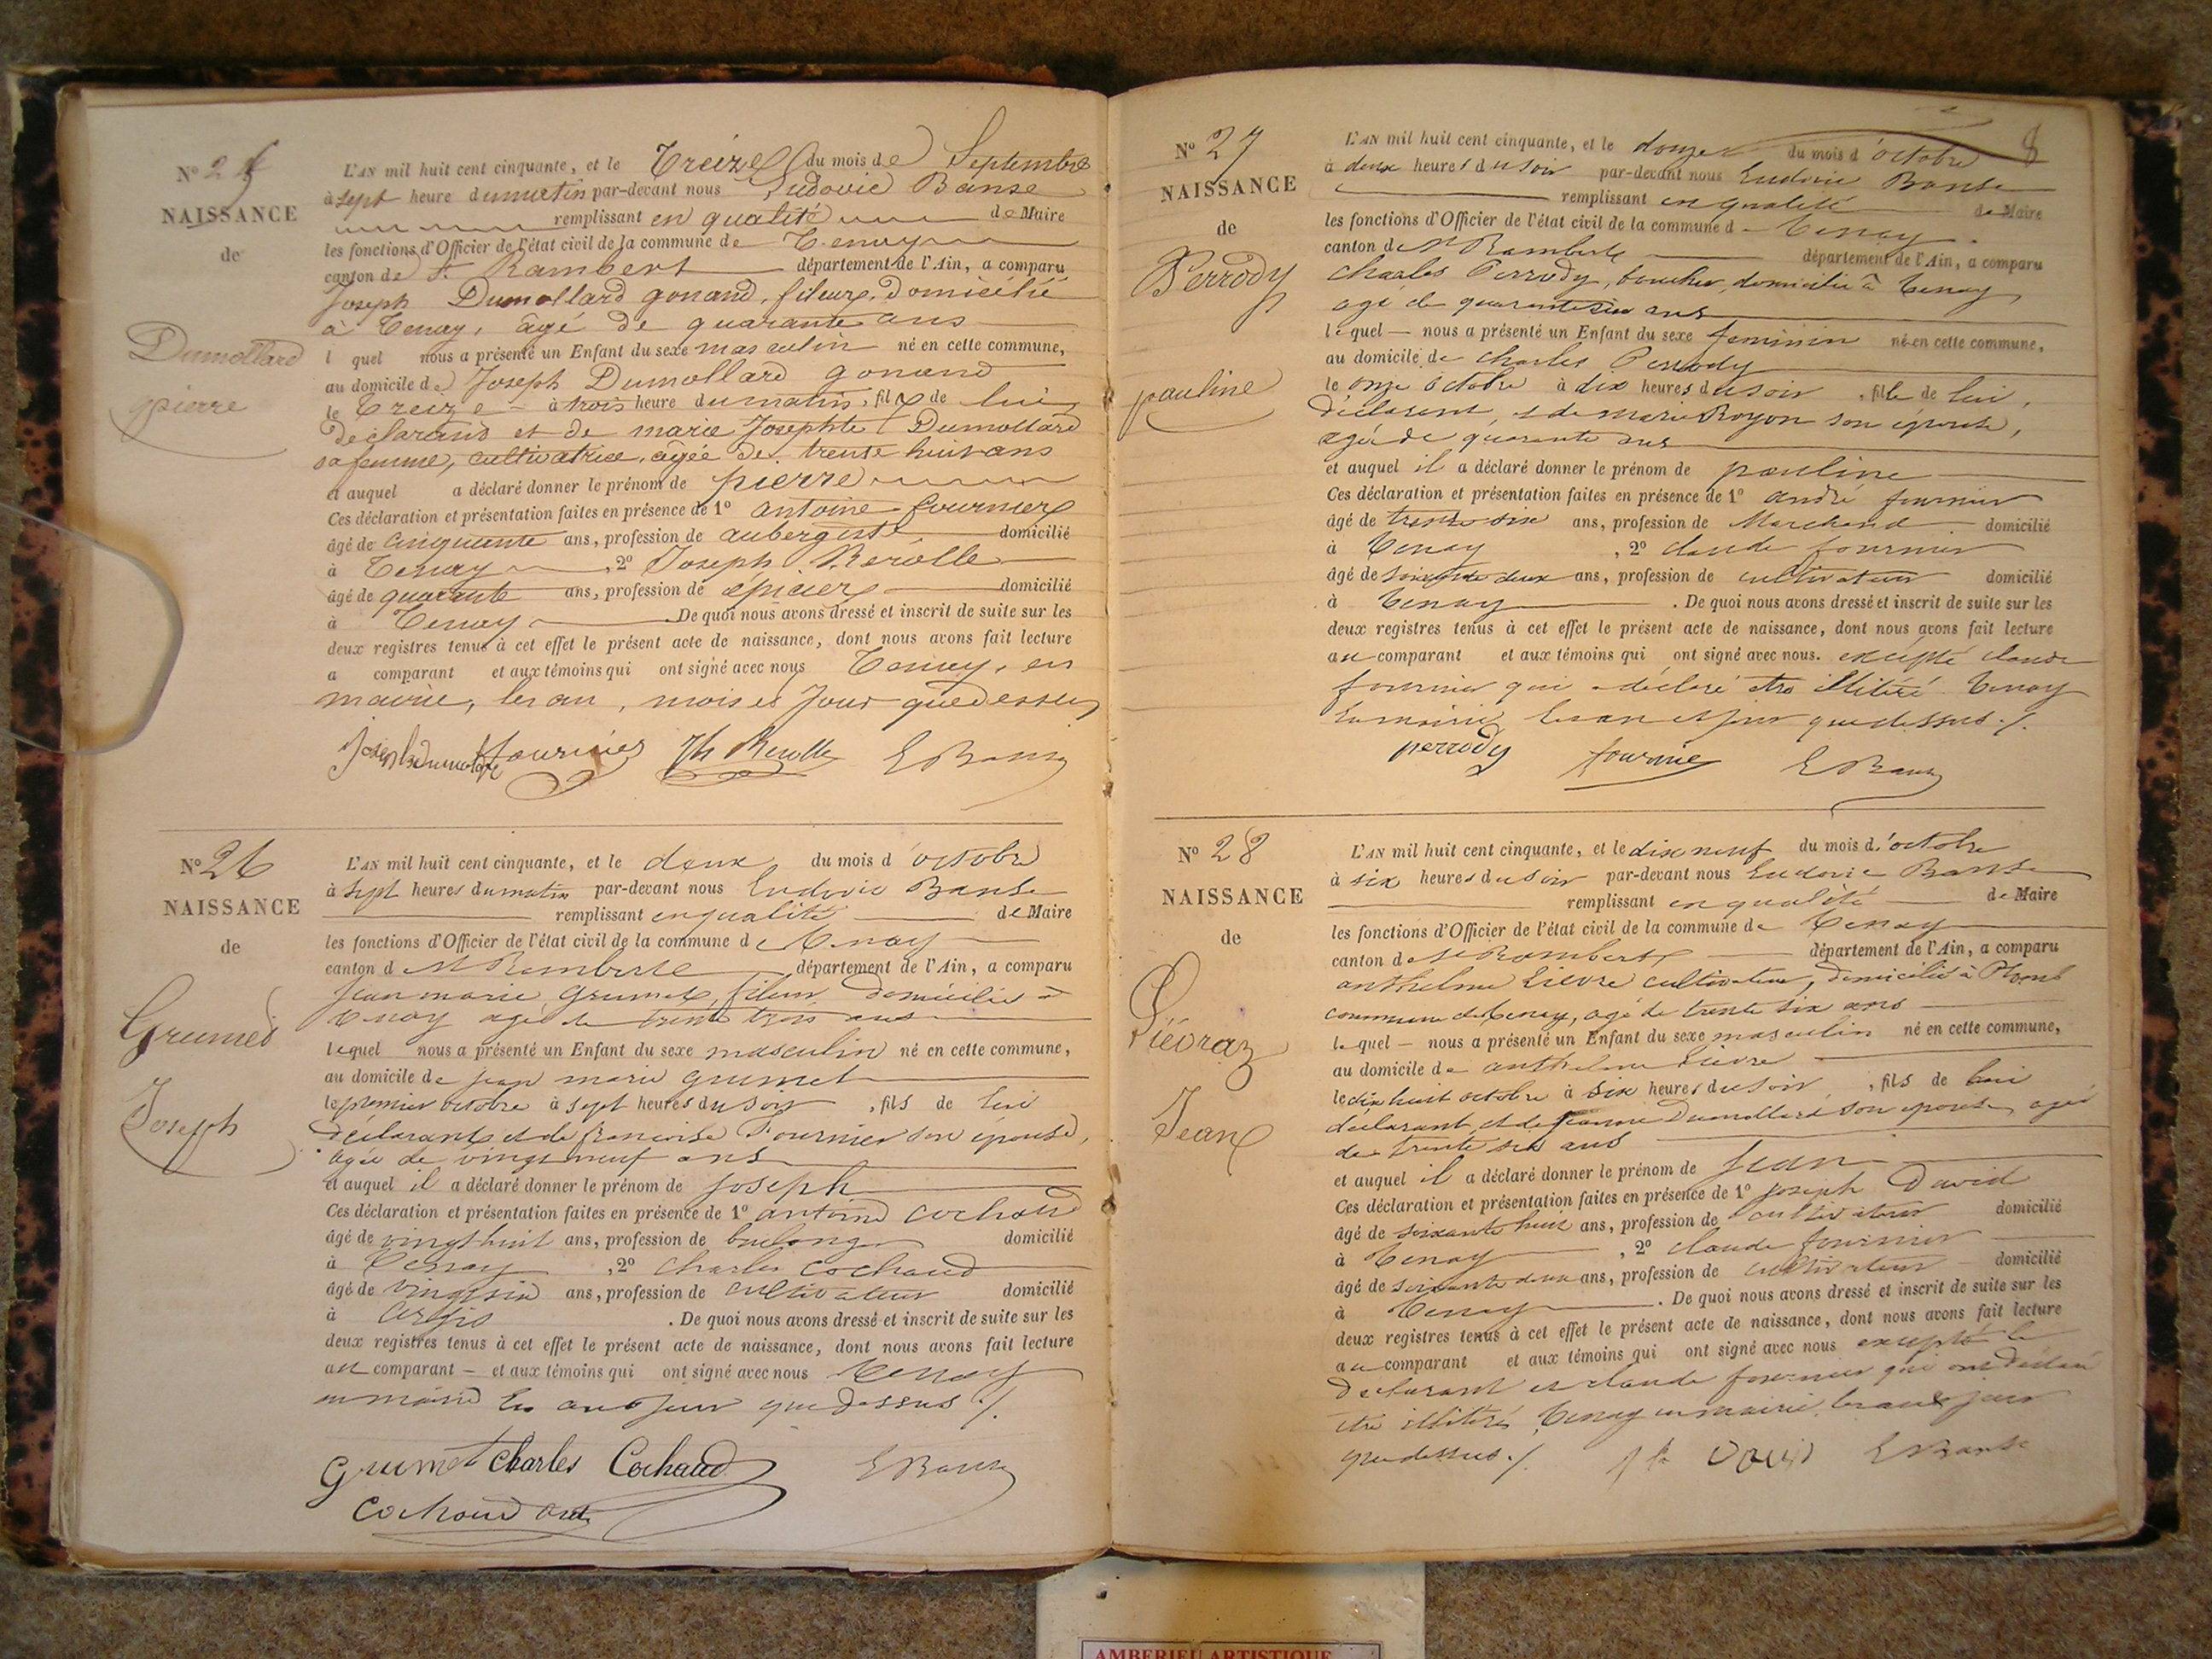 N° 25
NAISSANCE
de
Dumollard
pierre
L'AN mil huit cent cinquante, et le Treize du mois de Septembre
à sept heure du matin par-devant nous Ludovic Banse
remplissant en qualité de Maire
les fonctions d'Officier de l'état civil de la commune de Tenay
canton de St Rambert département de l'Ain, a comparu
Joseph Dumollard gonand, fileur, domicilié
à Tenay, âgé de quarante ans
l quel nous a présenté un Enfant du sexe masculin né en cette commune,
au domicile de Joseph Dumollard gonand
le Treize à trois heure du matin, fils de lui
déclarant et de marie Josephte Dumollard
sa femme, cultivatrice, âgée de trente huit ans
et auquel a déclaré donner le prénom de pierre
Ces déclaration et présentation faites en présence de 1° antoine fournier
âgé de cinquante ans, profession de aubergiste domicilié
à Tenay, 2° Joseph Rerolle
âgé de quarante ans, profession de épicier domicilié
à Tenay. De quoi nous avons dressé et inscrit de suite sur les
deux registres tenus à cet effet le présent acte de naissance, dont nous avons fait lecture
a comparant et aux témoins qui ont signé avec nous Tenay, en
mairie, les an, mois et Jour que dessus
Joseph Dumollard fournier Jh Rerolle L Banse
N° 26
NAISSANCE
de
Grumet
Joseph
L'AN mil huit cent cinquante, et le deux du mois d'octobre
à sept heures du matin par-devant nous Ludovic Banse
remplissant en qualité de Maire
les fonctions d'Officier de l'état civil de la commune de Tenay
canton d St Rambert département de l'Ain, a comparu
Jean marie Grumet, fileur domicilié à
Tenay agé de trente trois ans
lequel nous a présenté un Enfant du sexe masculin né en cette commune,
au domicile de jean marie grumet
le premier octobre à sept heures du soir, fils de lui
déclarant et de françoise Fournier son épouse,
agée de vingt neuf ans
et auquel il a déclaré donner le prénom de joseph
Ces déclaration et présentation faites en présence de 1° antoine cochaud
âgé de vingt huit ans, profession de boulanger domicilié
à Tenay, 2° charles cochaud
âgé de vingt six ans, profession de cultivateur domicilié
à Argis. De quoi nous avons dressé et inscrit de suite sur les
deux registres tenus à cet effet le présent acte de naissance, dont nous avons fait lecture
au comparant et aux témoins qui ont signé avec nous Tenay
en mairie les an et jour que dessus ./.
Grumet Charles Cochaud L Banse
Cochaud ant
8
N° 27
NAISSANCE
de
Perrody
pauline
L'AN mil huit cent cinquante, et le douze du mois d'octobre
à deux heures du soir par-devant nous Ludovic Banse
remplissant en qualité de Maire
les fonctions d'Officier de l'état civil de la commune de Tenay
canton de St Rambert département de l'Ain, a comparu
Charles Perrody, boucher, domicilié à Tenay
agé de quarante six ans
lequel nous a présenté un Enfant du sexe feminin né en cette commune,
au domicile de charles Perrody
le onze octobre à dix heures du soir, fille de lui,
déclarant, et de marie Royon son épouse,
agée de quarante ans
et auquel il a déclaré donner le prénom de pauline
Ces déclaration et présentation faites en présence de 1° andré fournier
âgé de trente six ans, profession de Marchand domicilié
à Tenay, 2° claude fournier
âgé de soixante deux ans, profession de cultivateur domicilié
à Tenay. De quoi nous avons dressé et inscrit de suite sur les
deux registres tenus à cet effet le présent acte de naissance, dont nous avons fait lecture
au comparant et aux témoins qui ont signé avec nous. excepté claude
fournier qui a déclaré etre illitéré Tenay
en mairie les an et jour que dessus ./.
perrody fournier L Banse
N° 28
NAISSANCE
de
Liévraz
Jean
L'AN mil huit cent cinquante, et le dix neuf du mois d'octobre
à six heures du soir par-devant nous Ludovic Banse
remplissant en qualité de Maire
les fonctions d'Officier de l'état civil de la commune de Tenay
canton de St Rambert département de l'Ain, a comparu
anthelme Lievre cultivateur, domicilié à
commune de Tenay, agé de trente six ans
lequel nous a présenté un Enfant du sexe masculin né en cette commune,
au domicile de anthelme Lievre
le dix huit octobre à six heures du soir, fils de lui
déclarant et de jeanne Dumollard son epouse, agée
de trente six ans
et auquel il a déclaré donner le prénom de jean
Ces déclaration et présentation faites en présence de 1° joseph David
âgé de soixante huit ans, profession de cultivateur domicilié
à Tenay, 2° claude fournier
âgé de soixante deux ans, profession de cultivateur domicilié
à Tenay. De quoi nous avons dressé et inscrit de suite sur les
deux registres tenus à cet effet le présent acte de naissance, dont nous avons fait lecture
au comparant et aux témoins qui ont signé avec nous excepté le
declarant et claude fournier qui ont déclaré
etre illitérés Tenay en mairie les an et jour
que dessus ./. Jh David L Banse
AMBERIEU ARTISTIQUE